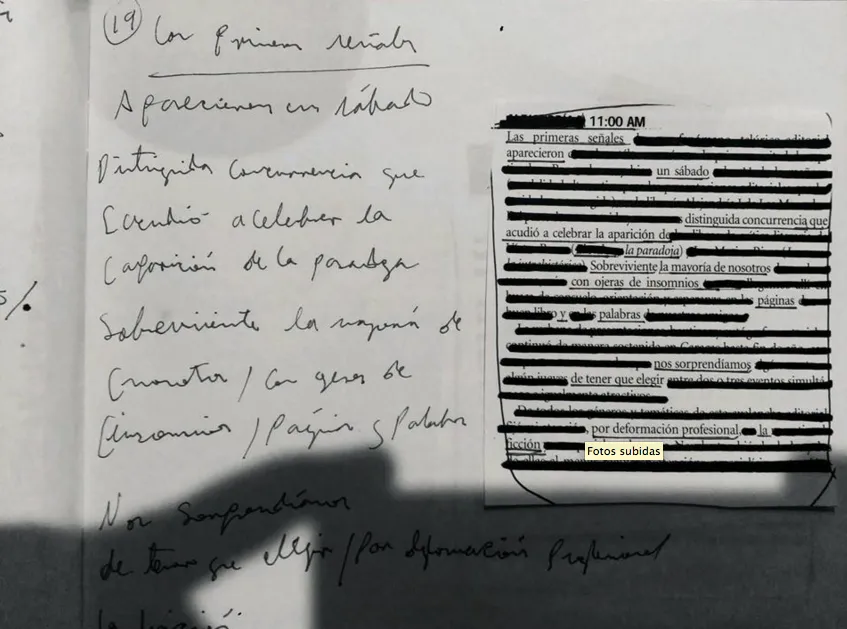 19 Las primeras señales
Aparecieron un sábado
Distinguida concurrencia que
acudió a celebrar la
aparición de la paradoja
Sobreviviente la mayoría de
nosotros / con ojeras de
insomnios / Páginas y Palabras
Nos sorprendíamos
de tener que elegir / Por deformación Profesional
la ficción
11:00 AM
Las primeras señales
aparecieron
un sábado
distinguida concurrencia que
acudió a celebrar la aparición de
la paradoja)
Sobreviviente la mayoría de nosotros
con ojeras de insomnios
páginas
y palabras
nos sorprendíamos
de tener que elegir
por deformación profesional, la
ficción
Fotos subidas